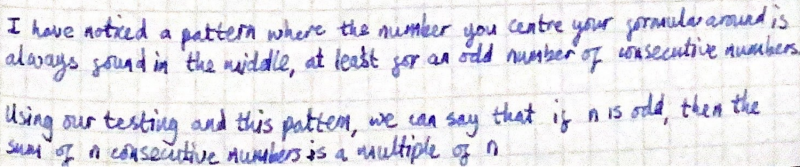 I have noticed a pattern where the number you centre your formula around is
always found in the middle, at least for an odd number of consecutive numbers.
Using our testing and this pattern, we can say that if n is odd, then the
sum of n consecutive numbers is a multiple of n